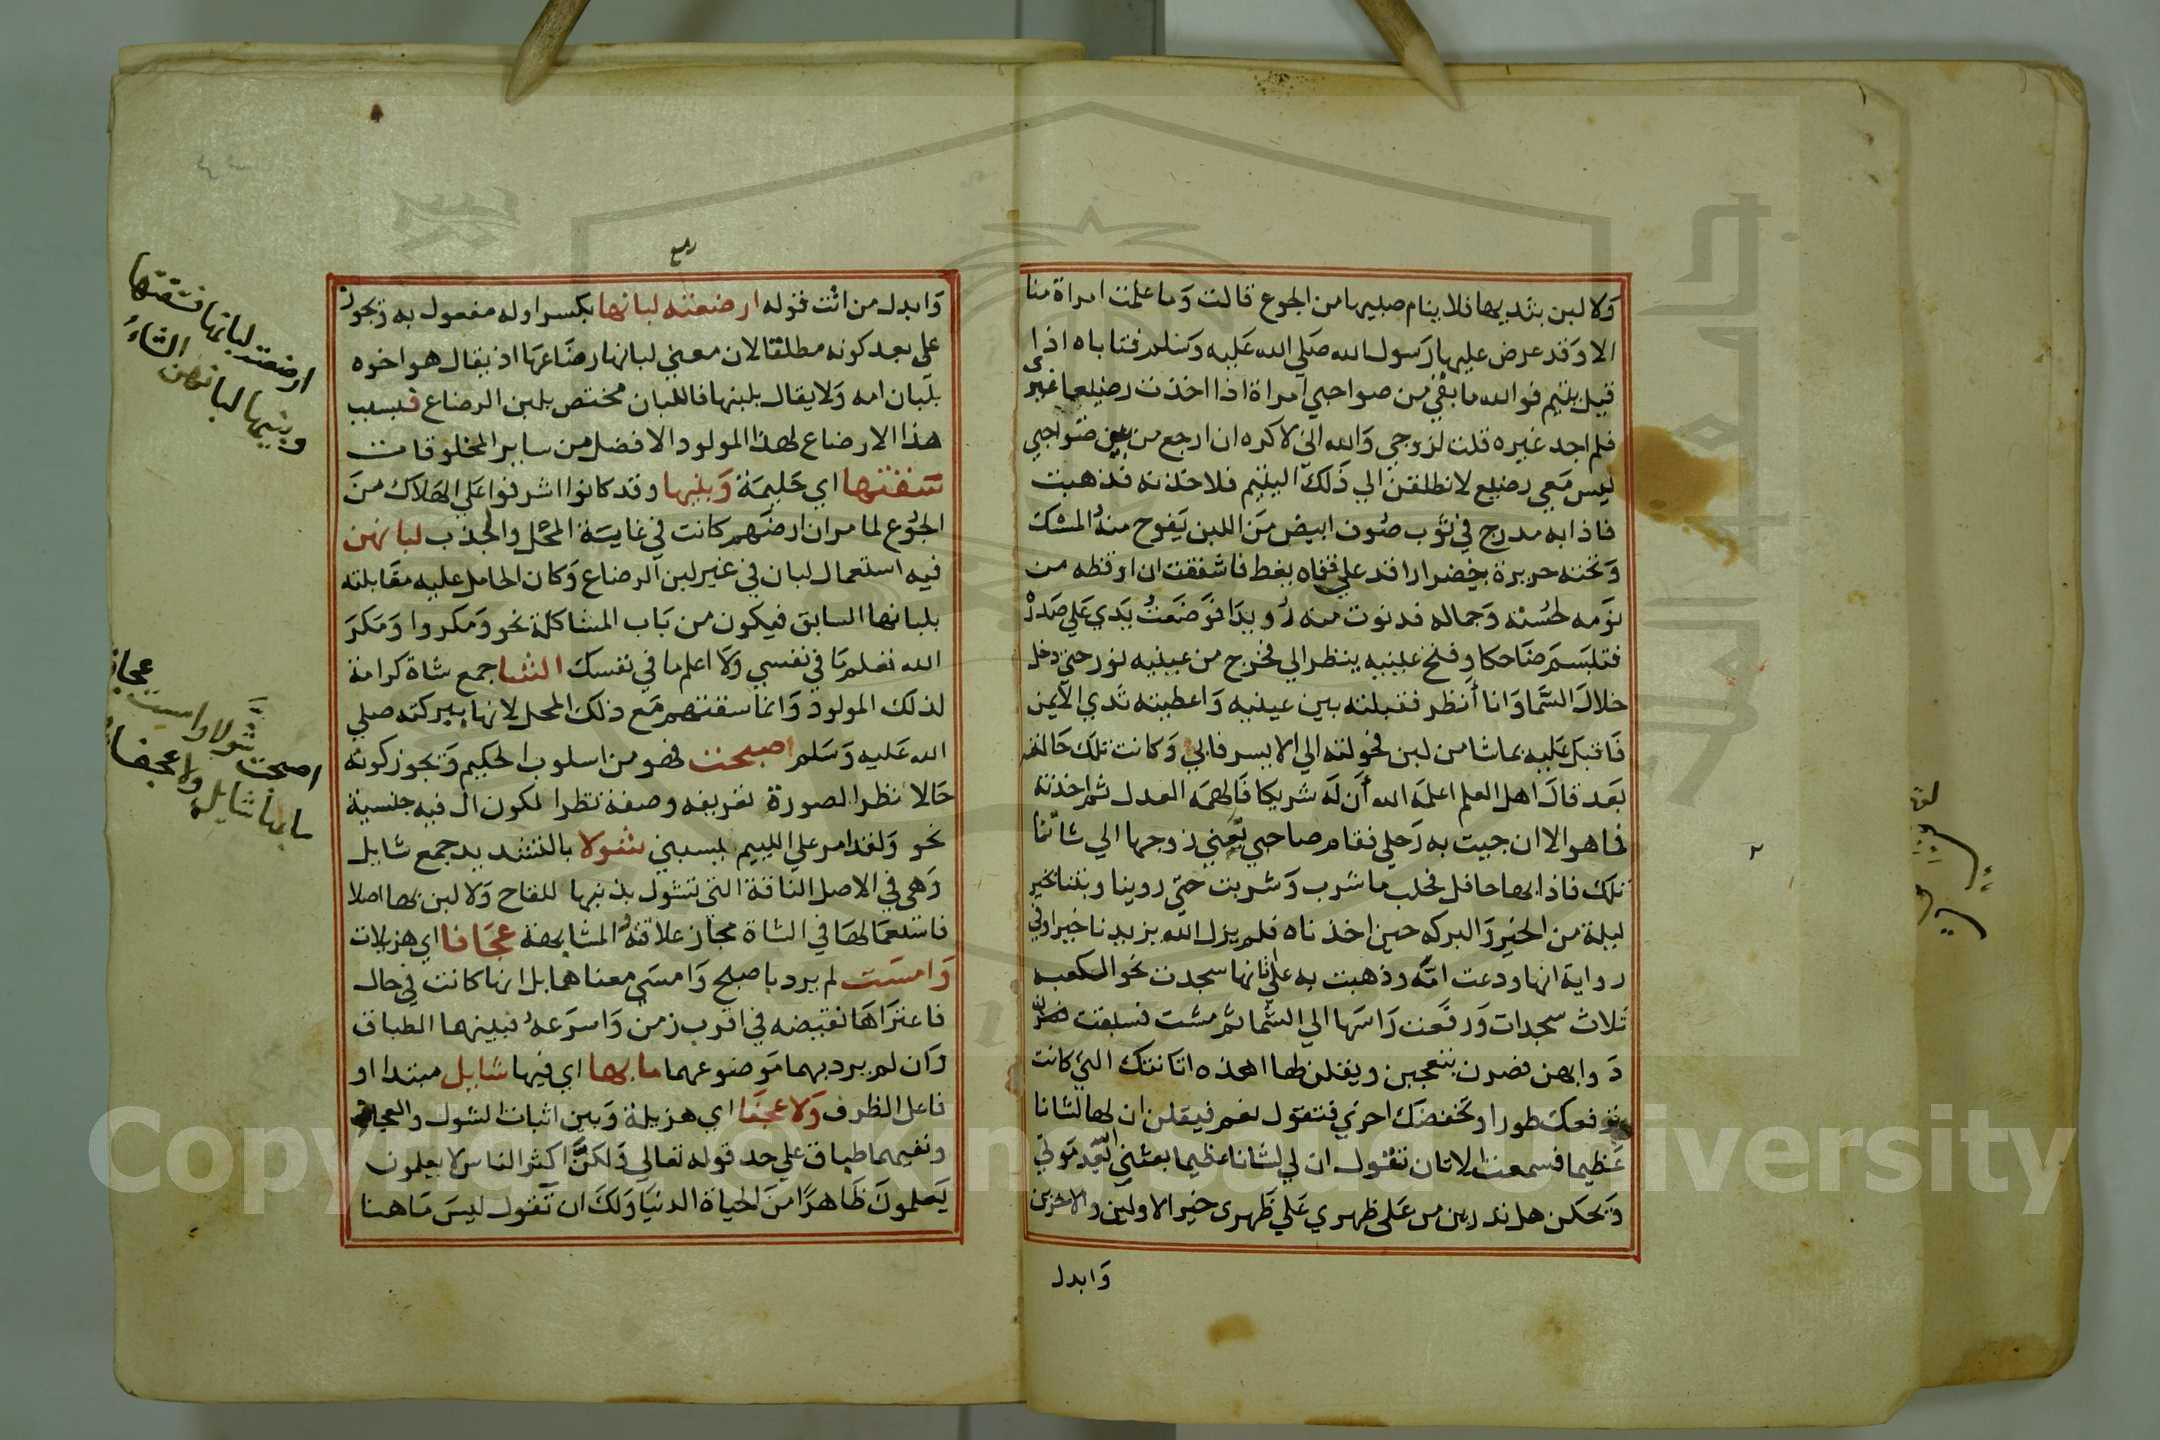 ولا لبن بثديها فلا ينام صبيها من الجوع قالت وما علمت امراة منا
الا وقد عرض عليها رسول الله صلي الله عليه وسلم فتاباه اذا
قيل يتيم فوالله ما بقي من صواحبي امراة اذا اخذت رضيعا غيري
فلم اجد غيره قلت لزوجي والله اني لاكره ان ارجع من بين صواحبي
ليس معي رضيع لانطلقن الي ذلك اليتيم فلاخذنه فذهبت
فاذا به مدرج في ثوب صوف ابيض من اللبن يفوح منه المسك
وتحته حريرة خضرا راقد علي قفاه يغط فاشفقت ان اوقظه من
نومه لحسنه وجماله فدنوت منه رويدا فوضعت يدي علي صدره
فتبسم ضاحكا وفتح عينيه ينظر الي فخرج من عينيه نور حتي دخل
خلال السما وانا أنظر فقبلته بين عينيه واعطيته ثدي الايمن
فاقبل عليه بماشا من لبن فحولته الي الايسر فابي وكانت تلك حالته
بعد قال اهل العلم اعلمه الله أن له شريكا فالهمه العدل ثم اخذته
فما هو الا ان جيت به رحلي فقام صاحبي تعني زوجها الي شاتنا
تلك فاذا بها حافل فحلب ما شرب وشربت حتي روينا وبتنا بخير
ليلة من الخير والبركه حين اخذناه فلم يزل الله يزيدنا خيرا وفي
رواية انها ودعت امه وذهبت به علي اتانها سجدت نحو الكعبه
ثلاث سجدات ورفعت راسها الي السما ثم مشت فسبقت
دوابهن فصرن يتعجبن ويقلن لها اهذه اتانك التي كانت
ترفعك طورا وتخفضك اخري فتقول نعم فيقلن ان لها لشانا
عظيما فسمعت الاتان تقول ان لي لشانا عظيما بعثني الله بعد موتي
ويحكن هل تدرين من علي ظهري علي ظهري خير الاولين والاخرين
وابدل
ربع
وابدل من اتت قوله ارضعته لبانها بكسر اوله مفعول به وتجوز
علي بعد كونه مطلقا لان معني لبانها رضاعها اذ يقال هو اخوه
بلبان امه ولا يقال بلبنها فاللبان مختص بلبن الرضاع فبسبب
هذا الارضاع لهذا المولود الافضل من ساير المخلوقات
سقتها اي حليمة وبنيها وقد كانوا اشرفوا علي الهلاك من
الجوع لما مر ان ارضهم كانت في غاية المحل والجدب لبانهن
فيه استعمال لبان في غير لبن الرضاع وكان الحامل عليه مقابلته
بلبانها السابق فيكون من باب المشاكلة نحو ومكروا ومكر
الله تعلم ما في نفسي ولا اعلم ما في نفسك الشا جمع شاة كرامة
لذلك المولود وانما سقتهم مع ذلك المحل لانها ببركته صلي
الله عليه وسلم اصبحت فهو من اسلوب الحكيم وتجوز كونه
حالا نظرا لصورة تعريفه وصفة نظرا لكون ال فيه جنسية
نحو ولقد امر علي اللييم يسبني شولا بالتشديد جمع شايل
وهي في الاصل الناقة التي تشول بذنبها للقاح ولا لبن بها اصلا
فاستعمالها في الشاة مجاز علاقته المشابهة عجافا اي هزيلات
وامست لم يرد باصبح وامسي معناهما بل انها كانت في حال
فاعتراها نقيضه في اقرب زمن واسرعه فبينهما الطباق
وان لم يرد بهما موضوعهما ما بها اي فيها شايل مبتدا او
فاعل الظرف ولا عجفا اي هزيلة وبين اثبات الشول والعجاف
ونفيهما طباق علي حد قوله تعالي ولكن اكثر الناس لا يعلمون
يعلمون ظاهرا من الحياة الدنيا ولك ان تقول ليس ما هنا
ارضعته لبانها فسقتها
وبنيها لبانهن الشاءُ
اصبحت شولا عجافا وامست
ما بها شايل ولا عجفاءُ